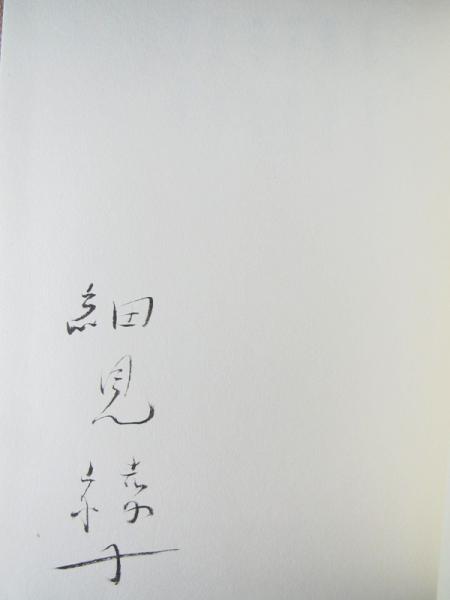 細見綾子